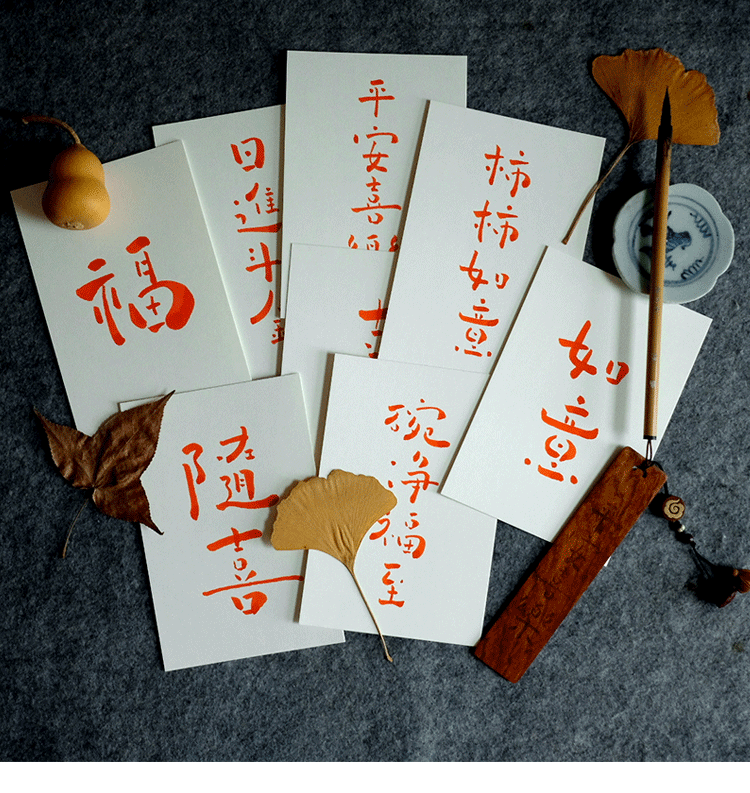 平安喜樂
日進斗金
柿柿如意
福
如意
碗净福至
隨喜